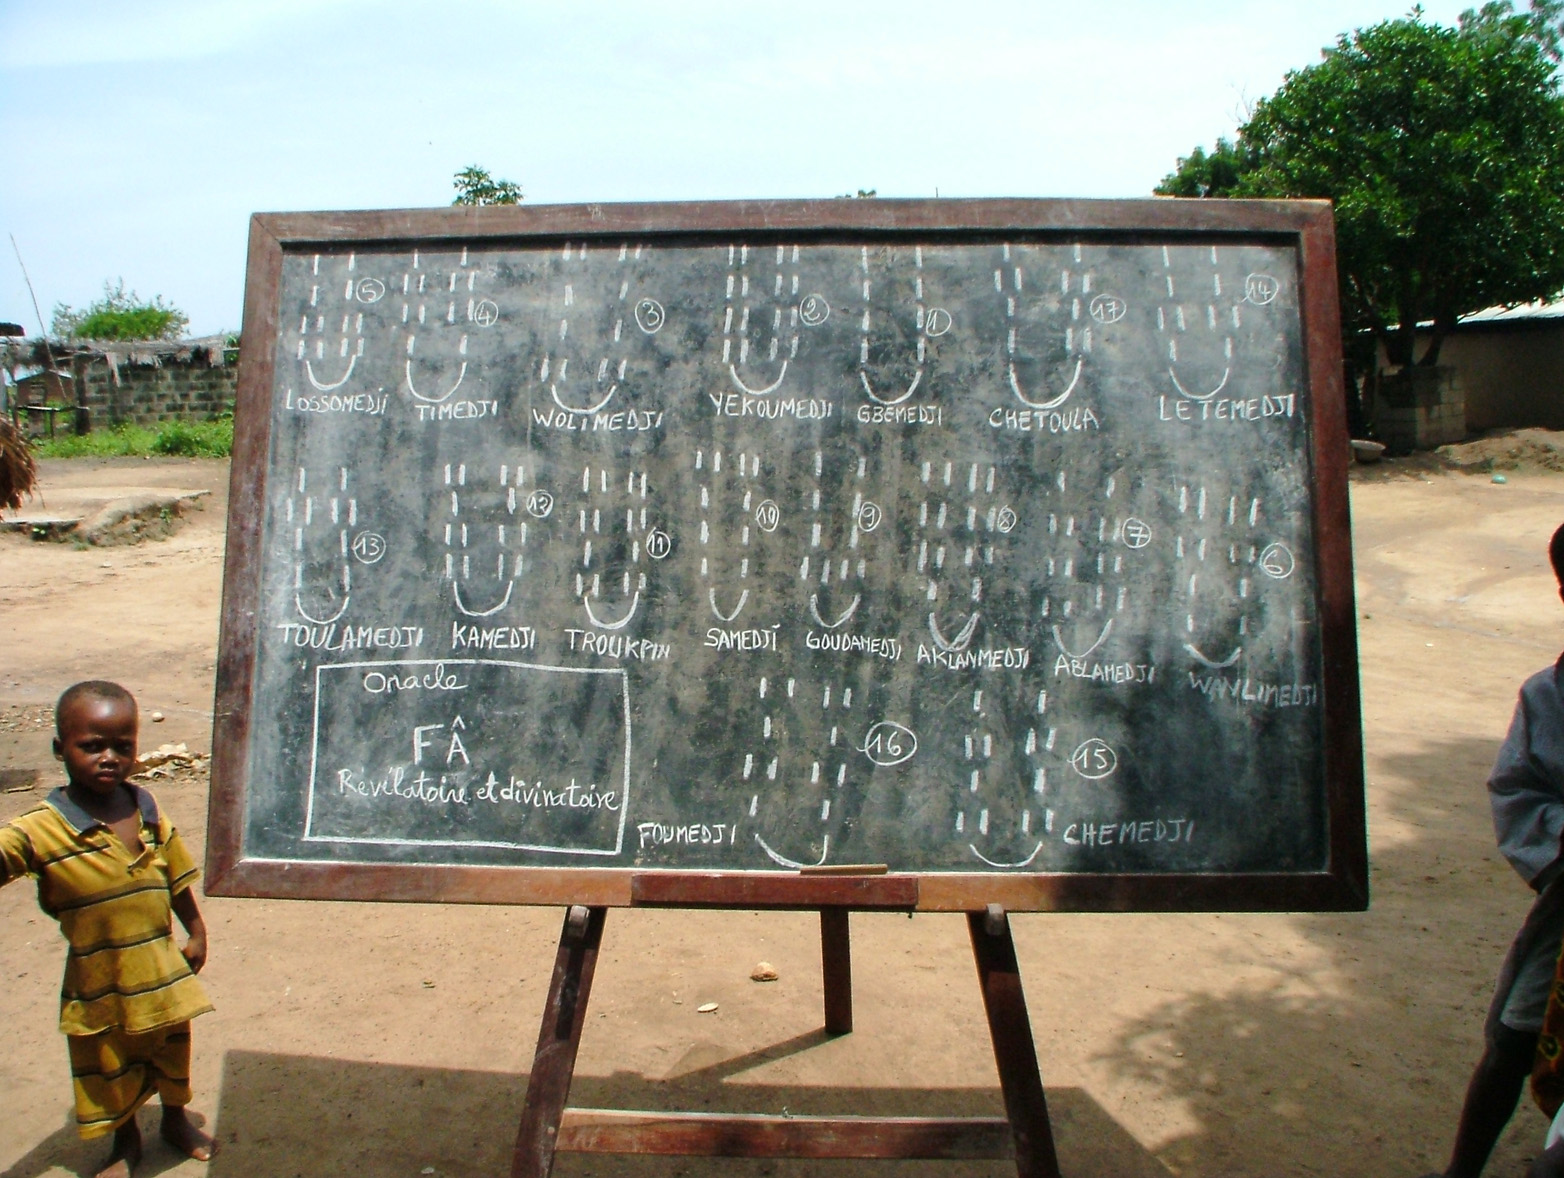 5 4 3 2 1 17 14
LOSSOMEDJI TIMEDJI WOLIMEDJI YEKOUMEDJI GBEMEDJI CHETOULA LETEMEDJI
13 12 11 10 9 8 7 6
TOULAMEDJI KAMEDJI TROUKPIN SAMEDJI GOUDAMEDJI AKLANMEDJI ABLAMEDJI WANLIMEDJI
Oracle
FÂ
Révélatoire et divinatoire
16 15
FOUMEDJI CHEMEDJI